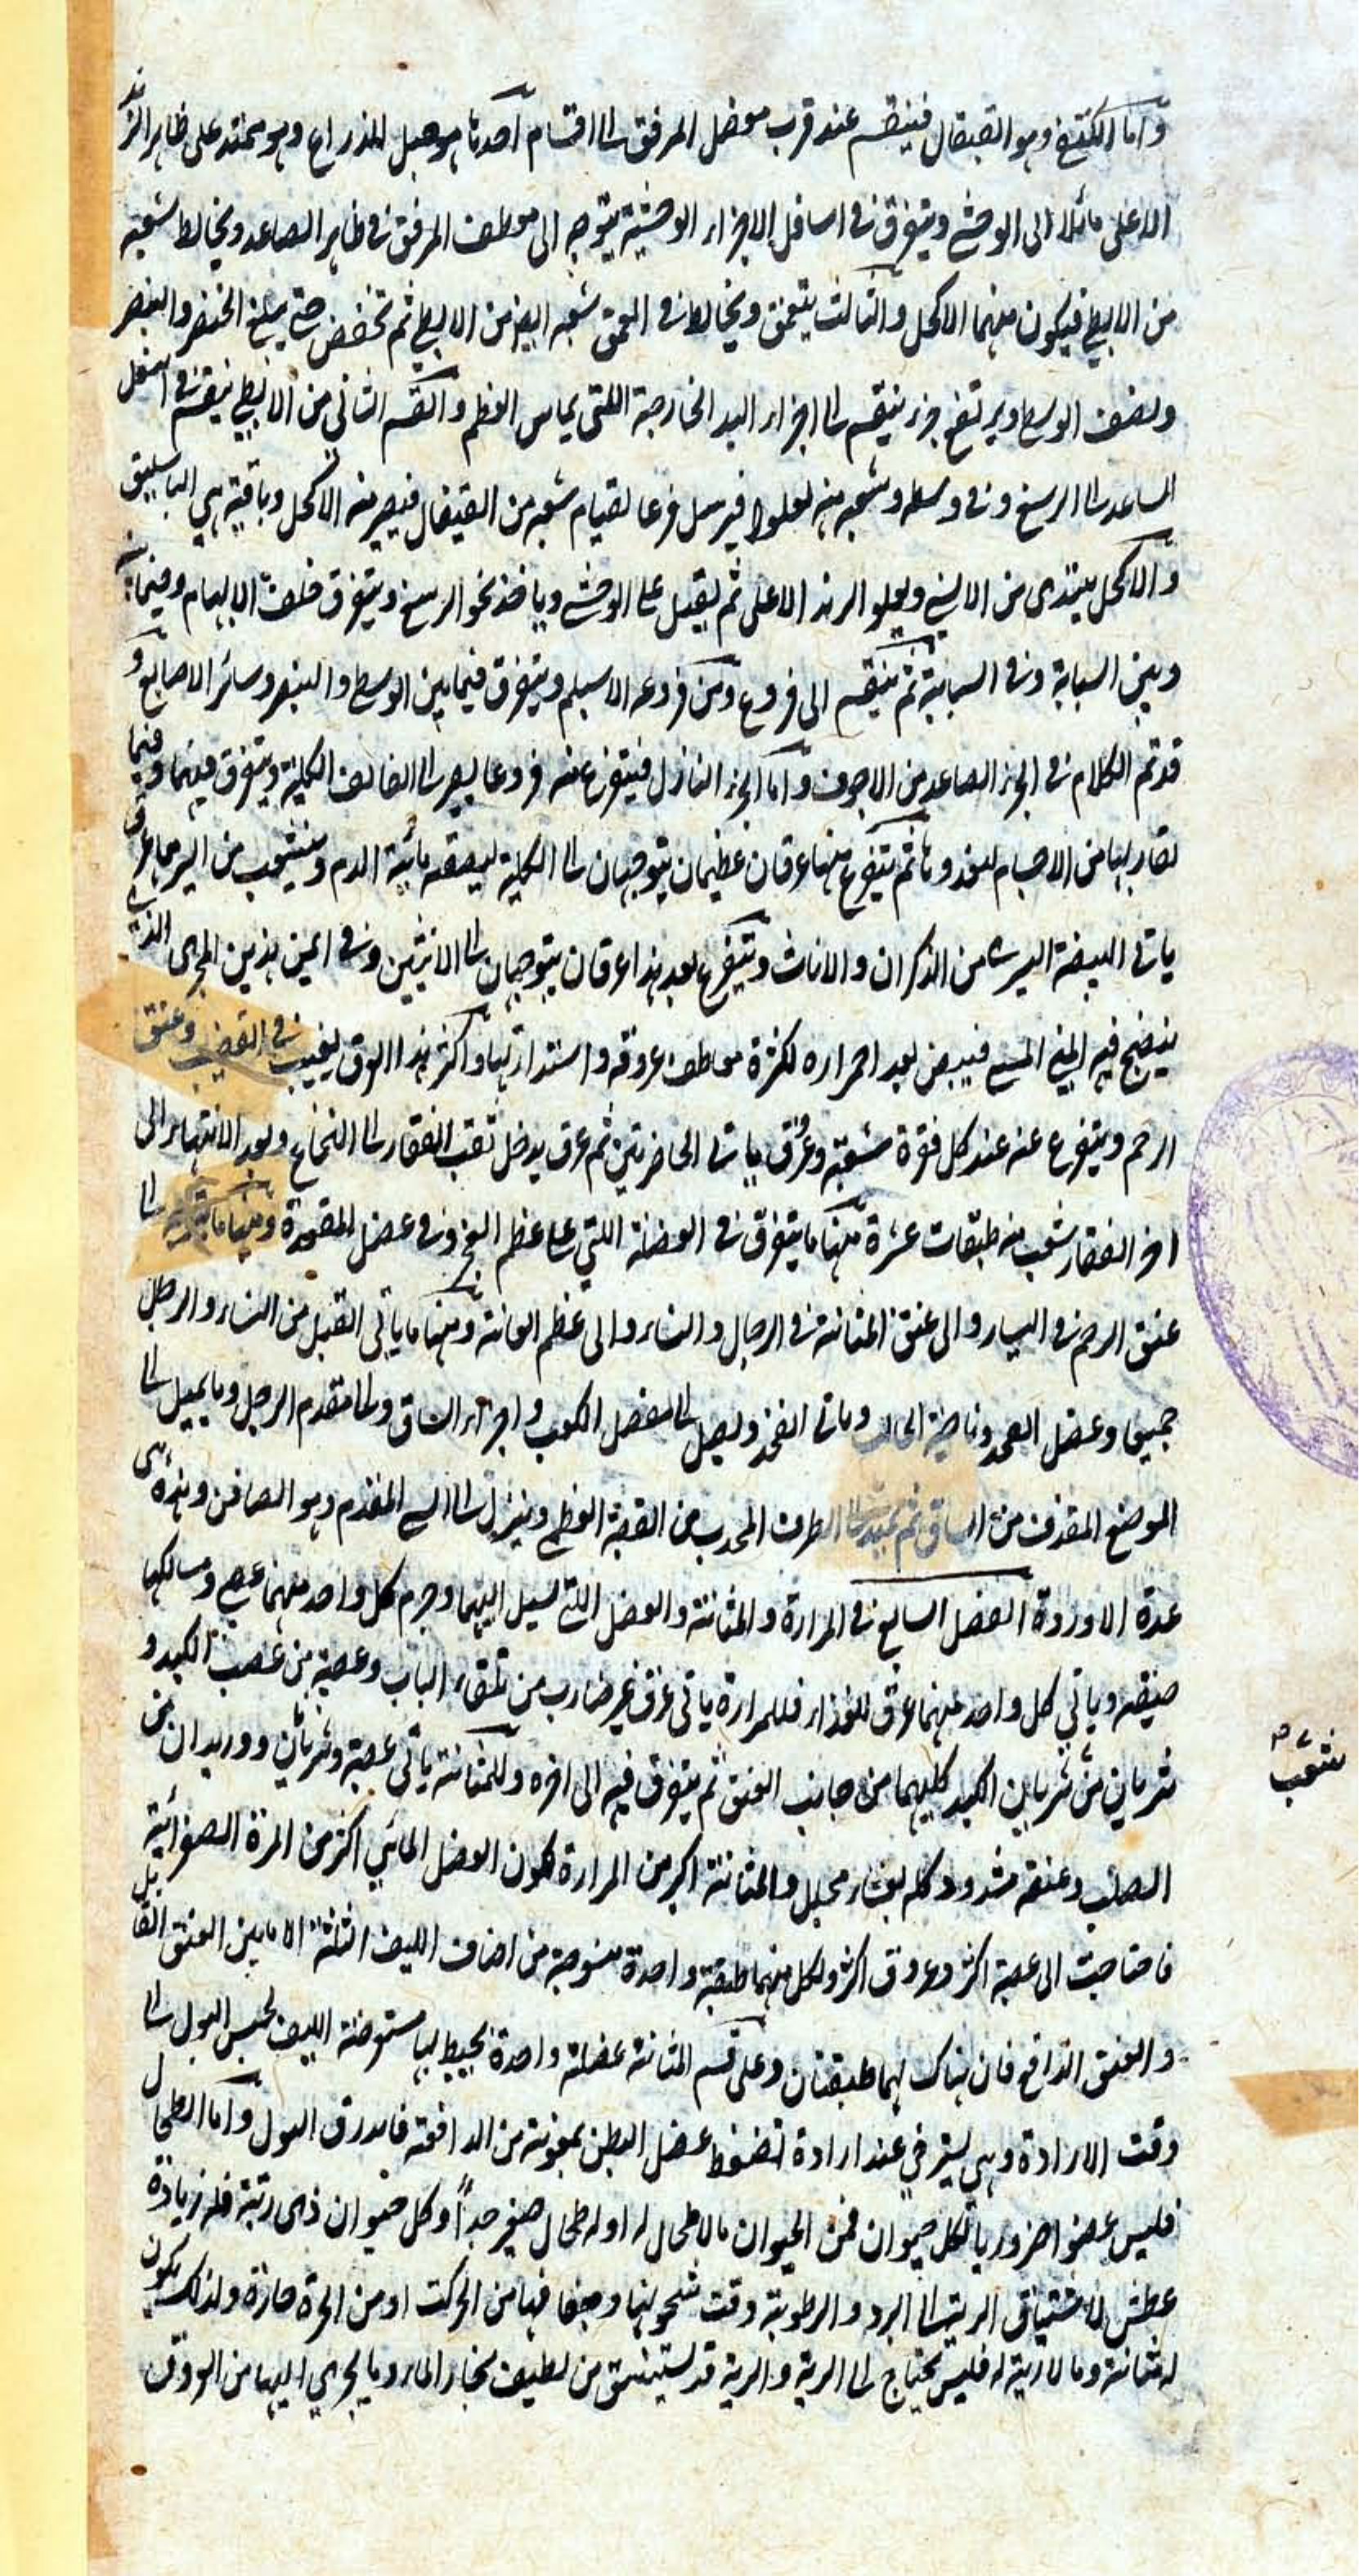 واما الكتفي وهو القيفال فينقسم عند قرب مفصل المرفق الى اقسام احدها هو حبل الذراع وهو ممتد على ظاهر الزند
الاعلى مائلا الى الوحشي ويتفرق في اسافل الاجزاء الوحشية يتوجه الى معطف المرفق في ظاهر الصاعد ويخالط شعبه
من الابطي فيكون منهما الاكحل والثالث يتعمق ويخالط في العمق شعبه ايضا من الابطي ثم تخفض حتى يبلغ الخنصر والبنصر
ونصف الوسطي ويرتفع جزء ينقسم الى اجزاء اليد الخارجة اللتى يماس العظم والقسم الثاني من الابطي ينقسم في اسفل
الساعد الى الرسغ وفي وسطه وشعبه منه يعلوا فيرسل فرعا لقيام شعبه من القيفال فيصير منه الاكحل وباقية هي الباسليق
والاكحل يبتدى من الانسي ويعلو الزند الاعلى ثم يقبل على الوحشي وياخذ نحو الرسغ ويتفرق خلف الابهام وفيما بينه
وبين السبابة وفي السبابة ثم ينقسم الى فروع ومن فروعه الاسيلم ويتفرق فيما بين الوسطى والبنصر وسائر الاصابع و
قد تم الكلام في الجزء الصاعد من الاجوف واما الجزء النازل فيتفرع منه فروعا يصير الى لفائف الكلية ويتفرق فيهما وفيما
تقاربها من الاجسام ليغذوها ثم يتفرع منها عرقان عظيمان يتوجهان الى الكلية ليصفه مائية الدم ويتشعب من ايسرهما عرق
ياتى البيضة اليسرى من الذكران والاناث ويتفرع بعد هذا عرقان يتوجهان الى الانثيين وفي ايمن هذين المجرى الذي
ينضج فيه المني فيبيض بعد احمراره لكثرة معاطف عروقه واستدارتها واكثر هذا العرق يغيب في القضيب وعنق
الرحم ويتفرع عنه عند كل فقرة شعبة وعرق ياتى الخاصرتين ثم عرق يدخل ثقب الفقار الى النخاع وبعد الانتهاء الى
اخر الفقار تشعب منه طبقات عشرة منها ما يتفرق في العضلة اللتي على عظم العجز وفي عضل المقعدة ومنها ما الى
عنق الرحم في النساء والى عنق المثانة في الرجال والنساء والى عظم العانة ومنها ما ياتى القبل من النساء والرجل
جميعا وعضل وناحية الحالب وياتى الفخذ ويصل الى مفصل الكعب واجزاء الساق والى مقدم الرجل وما يميل الى
الموضع من الساق ثم يميد الى الطرف المحدب من القصبة العظمى وينزل الى المقدم وهو الصافن وهذه هى
عدة الاوردة الفصل السابع في المرارة والمثانة والعضل اللتى لسيل اليهما وجرم كل واحد منهما عصبي ومسالكها
ضيقه وياتي كل واحد منهما عرق للغذاء فللمرارة ياتى عرق غير ضارب من تلقاء الباب وعصبه من عصب الكبد و
شريان من شريان الكبد كليهما من جانب العنق ثم يتفرق فيه الى اخره وللمثانة ياتى عصبة وشريان ووريدان من
الصلب وعنقه مشدود كله بغشاء محلل والمثانة اكبر من المرارة لكون الفضل المائي اكثر من المرة الصفرائية
فاحتاجت الى عصبة اكثر وعروق اكثر ولكل منهما طبقة واحدة منسوجة من اصناف الليف الثلثة الا ما بين العنق القابل
والعنق الدافع فان هناك لهما طبقتان وعلى فم المثانة عضلة واحدة يحيط بها مستعرضة الليف لحبس البول الى
وقت الارادة وهي يسترخي عند ارادة لتضغط عضل البطن بمعونة من الدافعة فاندرق البول واما الطحال
فليس عضوا ضروريا لكل حيوان فمن الحيوان مالا طحال له او له طحال صغير جدا وكل حيوان ذى رئة فله زيادة
عطش لاشتياق الرية الى البرد والرطوبة وقت سخونتها وجفافها من الحركت او من الحرة حارة ولذلك يكون
له مثانة وما لا رية له فليس يحتاج الى الرية والرية قد يستنشق من لطيف بخار الماء وما يجري اليها من العروق
نتشعب